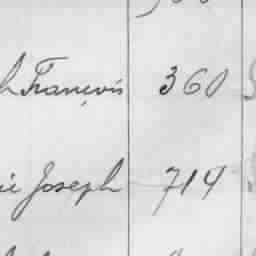 François 360
Joseph 714